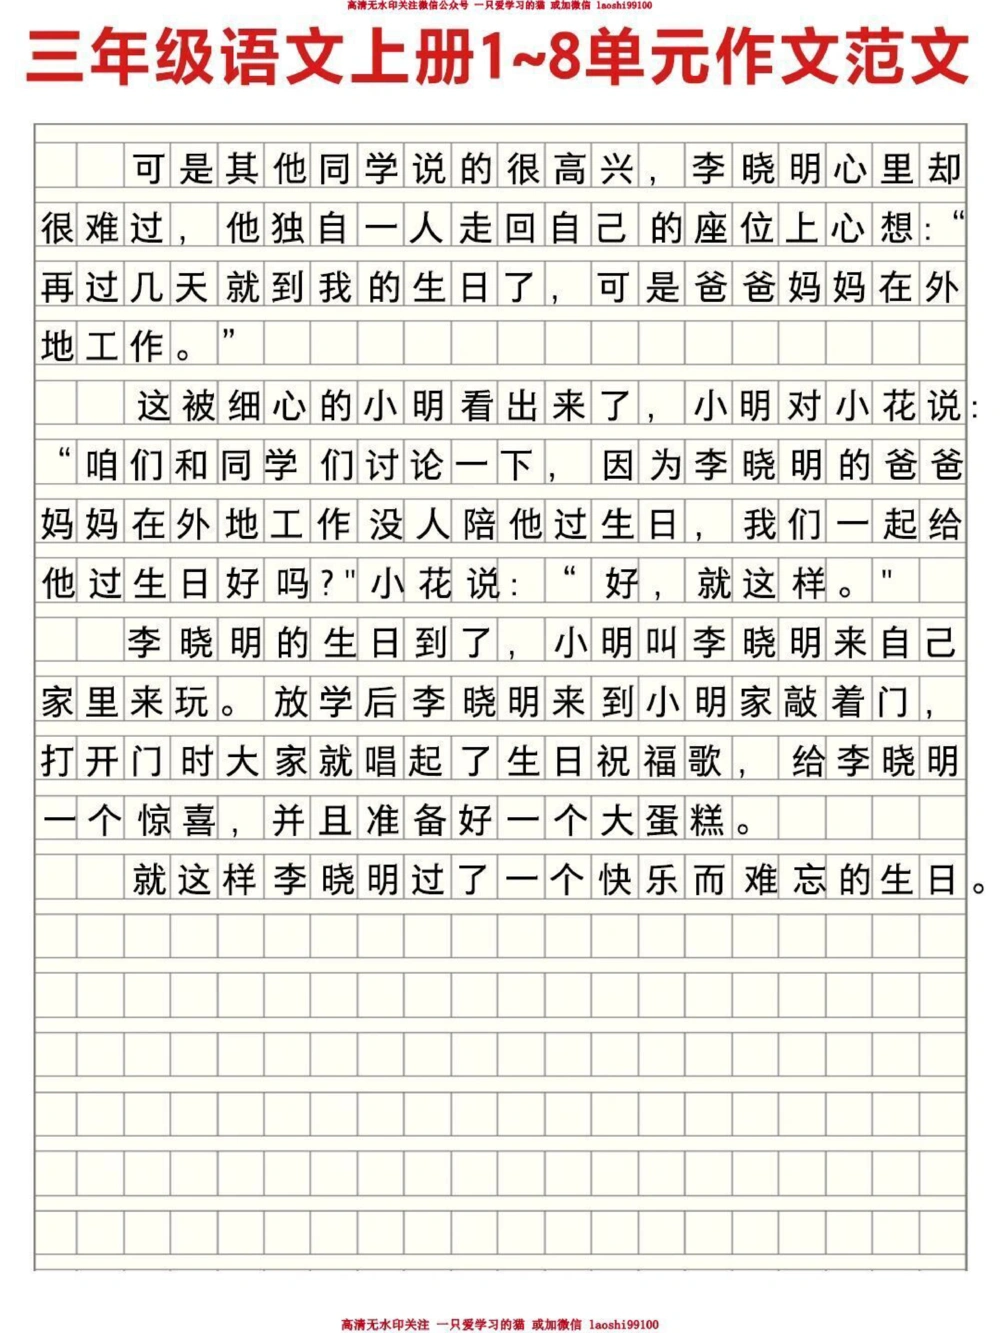 高清无水印关注微信公众号 一只爱学习的猫 或加微信 laoshi99100
三年级语文上册1~8单元作文范文
可是其他同学说的很高兴，李晓明心里却
很难过，他独自一人走回自己的座位上心想：“
再过几天就到我的生日了，可是爸爸妈妈在外
地工作。”
这被细心的小明看出来了，小明对小花说：
“咱们和同学们讨论一下，因为李晓明的爸爸
妈妈在外地工作没人陪他过生日，我们一起给
他过生日好吗?"小花说：“好，就这样。"
李晓明的生日到了，小明叫李晓明来自己
家里来玩。放学后李晓明来到小明家敲着门，
打开门时大家就唱起了生日祝福歌，给李晓明
一个惊喜，并且准备好一个大蛋糕。
就这样李晓明过了一个快乐而难忘的生日。
高清无水印关注 一只爱学习的猫 或加微信 laoshi99100